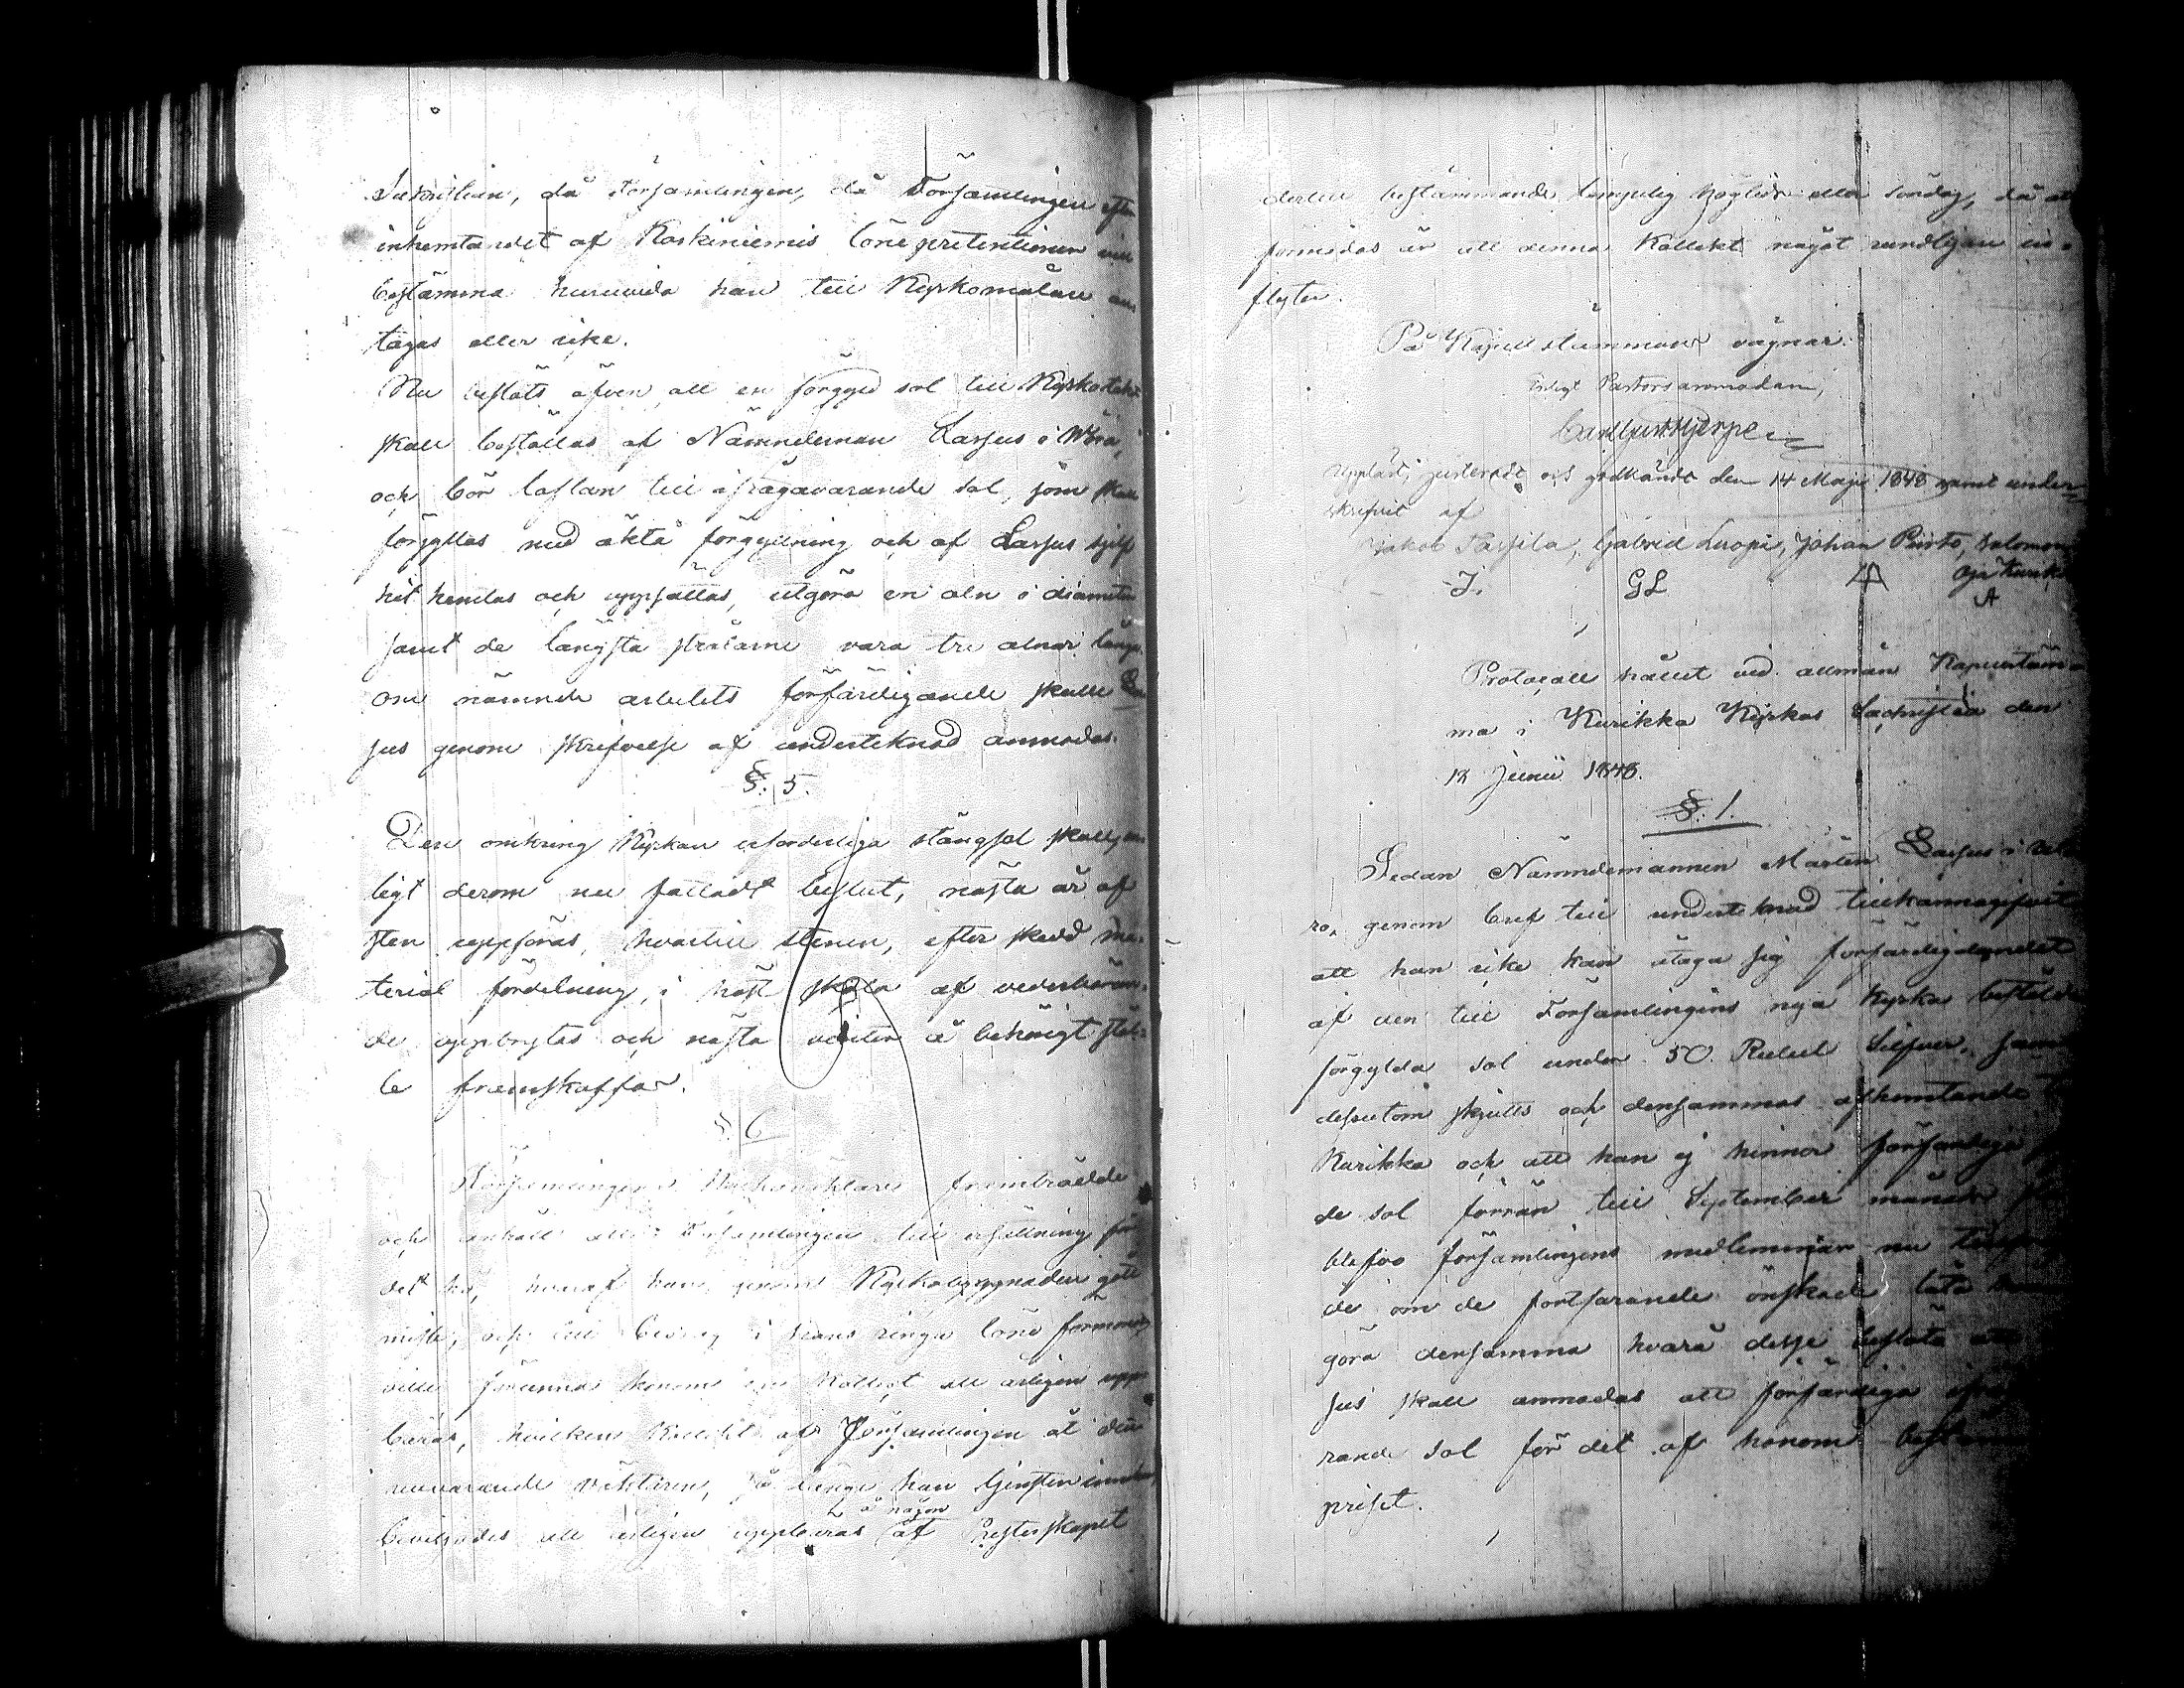 Sakristian, då Församlingen, då Församlingen efter
inhemtandet af Koskiniemis löne pretentioner
bestämma huruvida han till Kyrkomålare an
tagas eller icke.
Nu beslöts äfven att en förgyld sol till Kyrkotaket
skall beställas af Nämndeman Larsus i Wörå,
och bör laflan till ifrågavarande sol, som skall
förgyllas med äkta förgyllning och af Larsus sjelf
hit hemtas och uppsättas, utgöra en aln i diameter
samt de längsta strålarne vara tre alnar långa
om nämnde arbetets förfärdigande skulle Lar
sus genom skrifvelse af undertecknad anmodas.
§. 5.
Den omkring Kyrkan erforderliga stängsel skall, en
ligt derom nu fattadt beslut, nästa år af
sten uppföras, hvartill stenen, efter skedd ma-
terial fördelning, i höst skola af vederböran-
de uppbrytas och nästa vinter å behörigt stäl-
le framskaffas.
§. 6
Församlingens framträdde
och anhöll att Församlingen till ersättning för
det hö, hvaraf han genom Kyrkobyggnaden gått
miste, och till bidrag i hans ringa löne förmoner
ville förunna honom en Kollekt att årligen upp
bäras, hvilken Kollekt af Församlingen åt den
nuvarande väktaren, så länge han tjensten innehar
å någon
beviljades att årligen uppbäras af Presterskapet
dertill bestämmande lämpelig högtid eller söndag, då at
förmodas är att denna Kollekt något rundligare in-
flyter.
På Kapellstämmans vägnar.
Enligt Pastors anmodan,
Carl Gust. Hjerpe
Uppläst, justeradt och godkändt den 14 Maji 1848 samt under-
skrifvit af
Jakob Passila, Gabriel Luopa, Johan Pirto, Salomon
J. GL Oja Kurikka
A
Protocoll hållet vid allmän Kapellstäm-
ma i Kurikka Kyrkas Sachristia den
12 Junii 1848.
§. 1.
Sedan Nämndemannen Mårten Larsus i Wö
rå, genom bref till undertecknad tillkännagifvit
att han icke kan åtaga sig förfärdigandet
af den till Församlingens nya Kyrka bestälda
förgylda sol under 50 Rubel Silfver, samt
dessutom skjuts och densammas afhemtande
Kurikka och att han ej hinner förfärdiga
de sol förrän till September månads
blefvo församlingens medlemmar nu
de om de fortfarande önskade låta
göra densamma hvarå desse beslöto att
sus skall anmodas att förfärdiga
rande sol för det af honom
priset.